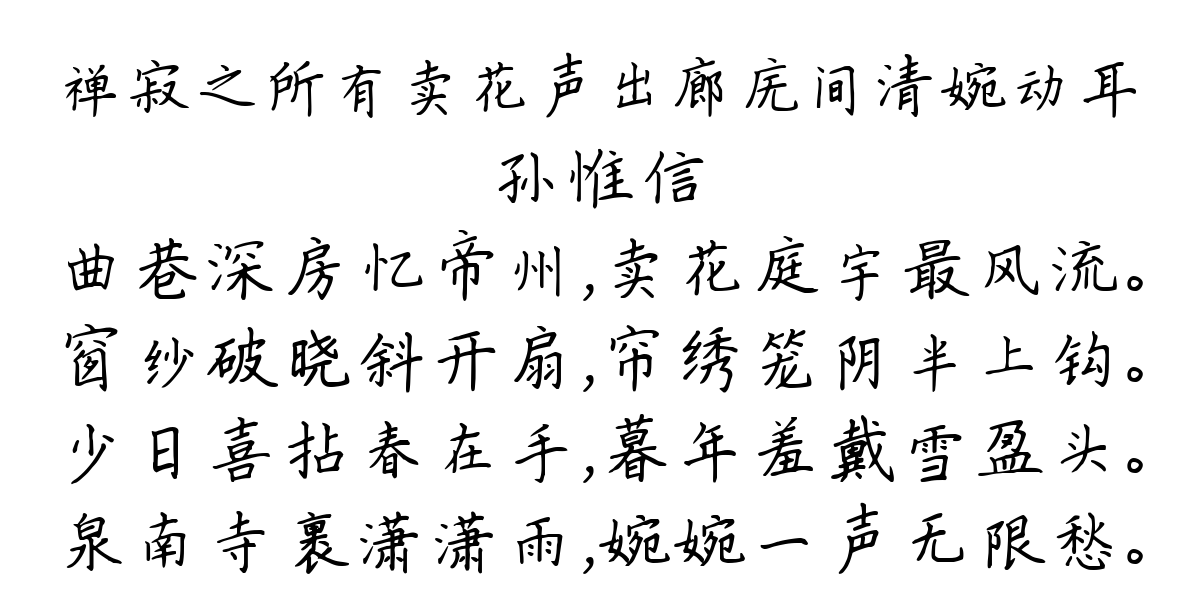 禅寂之所有卖花声出廊庑间清婉动耳
孙惟信
曲巷深房忆帝州,卖花庭宇最风流。
窗纱破晓斜开扇,帘绣笼阴半上钩。
少日喜拈春在手,暮年羞戴雪盈头。
泉南寺裹潇潇雨,婉婉一声无限愁。